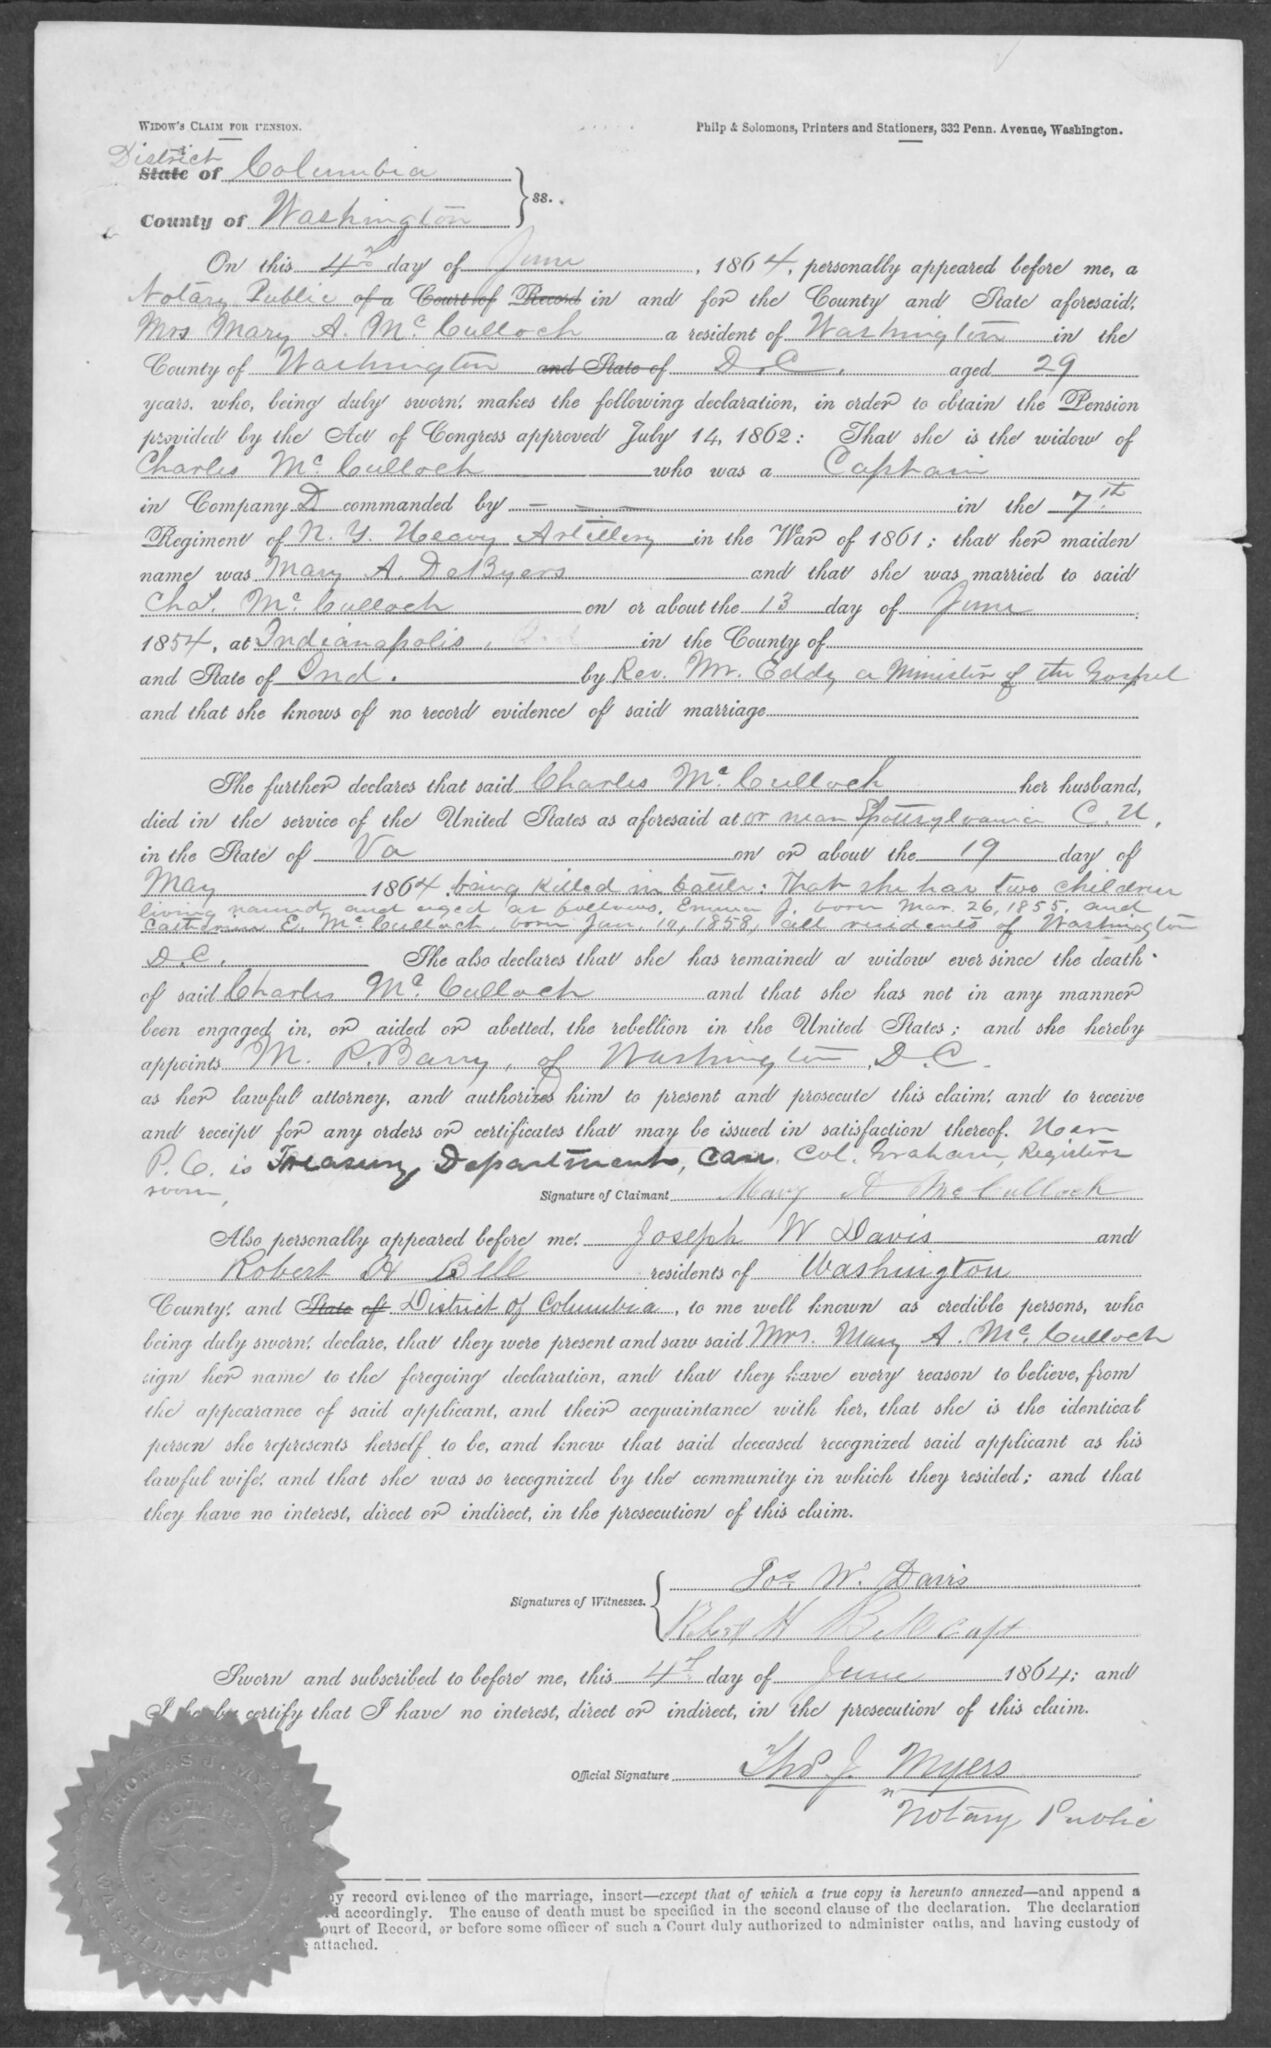 WIDOW'S CLAIM FOR PENSION.
Philp & Solomons, Printers and Stationers, 332 Penn. Avenue, Washington.
District
State of Columbia
County of Washington } ss.
On this 4th day of June, 1864, personally appeared before me, a
Notary Public of a Court of Record in and for the County and State aforesaid,
Mrs Mary A. McCulloch a resident of Washington in the
County of Washington and State of D.C. aged 29
years, who, being duly sworn, makes the following declaration, in order to obtain the Pension
provided by the Act of Congress approved July 14, 1862: That she is the widow of
Charles McCulloch who was a Captain
in Company D commanded by — — — in the 7th
Regiment of N. Y. Heavy Artillery in the War of 1861; that her maiden
name was Mary A. DeByers and that she was married to said
Chas. McCulloch on or about the 13 day of June
1854, at Indianapolis, in the County of
and State of Ind. by Rev. Mr. Eddy a Minister of the Gospel
and that she knows of no record evidence of said marriage
She further declares that said Charles McCulloch her husband,
died in the service of the United States as aforesaid at or near Spottsylvania C. H.
in the State of Va on or about the 19 day of
May 1864, being killed in battle: That she has two children
living named and aged as follows, Emma J. born Mar. 26, 1855, and
Catherine E. McCulloch, born Jan. 1858, all residents of Washington
D.C. She also declares that she has remained a widow ever since the death
of said Charles McCulloch and that she has not in any manner
been engaged in, or aided or abetted, the rebellion in the United States; and she hereby
appoints M. P. Barry, of Washington, D.C.
as her lawful attorney, and authorizes him to present and prosecute this claim, and to receive
and receipt for any orders or certificates that may be issued in satisfaction thereof. Her
P. O. is Treasury Department, care Col. Graham, Registers
room,
Signature of Claimant Mary A McCulloch
Also personally appeared before me, Joseph W Davis and
Robert H Bell residents of Washington
County, and State of District of Columbia, to me well known as credible persons, who
being duly sworn, declare, that they were present and saw said Mrs. Mary A. McCulloch
sign her name to the foregoing declaration, and that they have every reason to believe, from
the appearance of said applicant, and their acquaintance with her, that she is the identical
person she represents herself to be, and know that said deceased recognized said applicant as his
lawful wife, and that she was so recognized by the community in which they resided; and that
they have no interest, direct or indirect, in the prosecution of this claim.
Jos W. Davis
Signatures of Witnesses.
Robert H Bell Capt
Sworn and subscribed to before me, this 4th day of June 1864; and
I hereby certify that I have no interest, direct or indirect, in the prosecution of this claim.
Official Signature Tho J. Myers
Notary Public
THOMAS J. M
WASHINGTON
ny record evidence of the marriage, insert—except that of which a true copy is hereunto annexed—and append a
d accordingly. The cause of death must be specified in the second clause of the declaration. The declaration
ourt of Record, or before some officer of such a Court duly authorized to administer oaths, and having custody of
e attached.